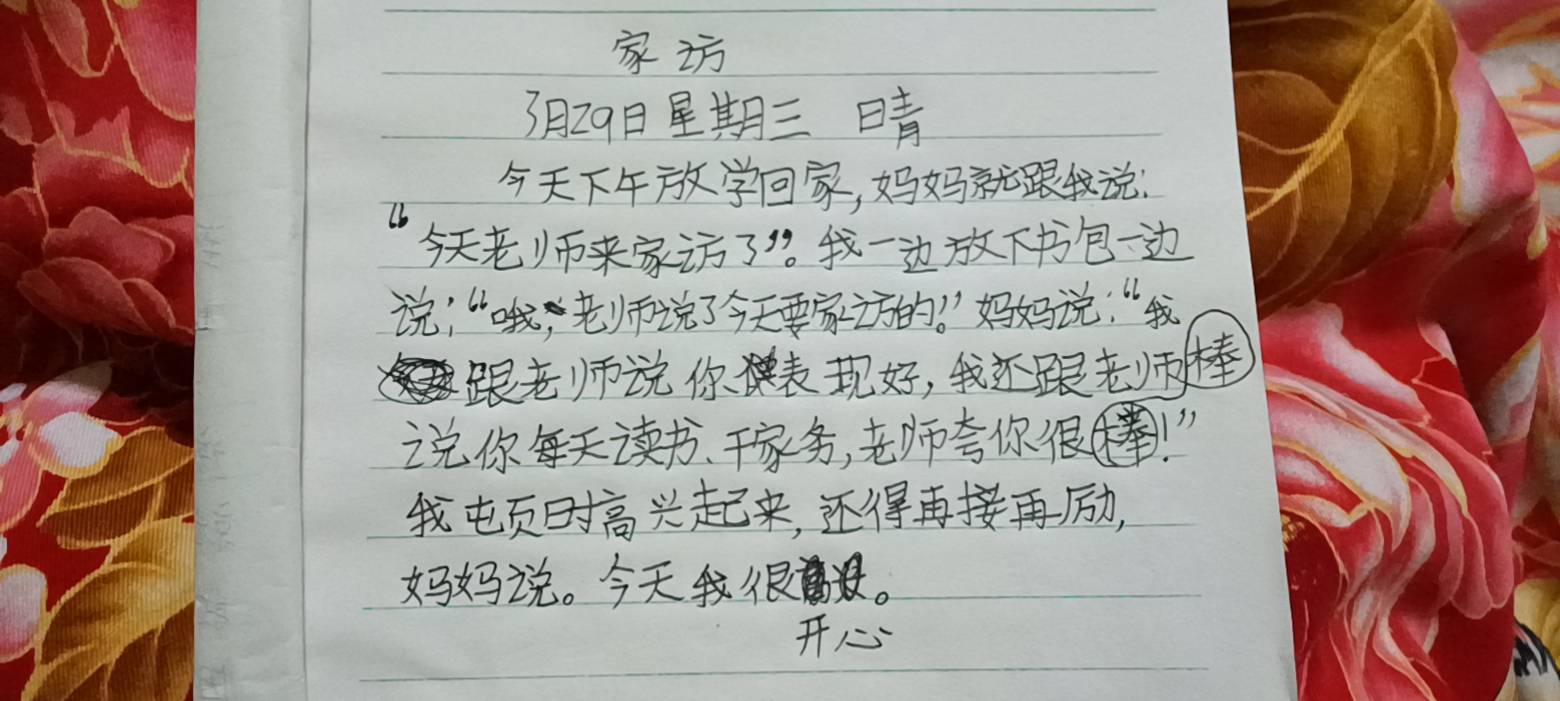 家访
3月29日 星期三 晴
今天下午放学回家,妈妈就跟我说:
“今天老师来家访了”。我一边放下书包一边
说:“哦,老师说了今天要家访的!”妈妈说:“我
跟老师说你表现好,我还跟老师棒
说你每天读书、干家务,老师夸你很棒!”
我屯页时高兴起来,还得再接再厉,
妈妈说。今天我很。
开心